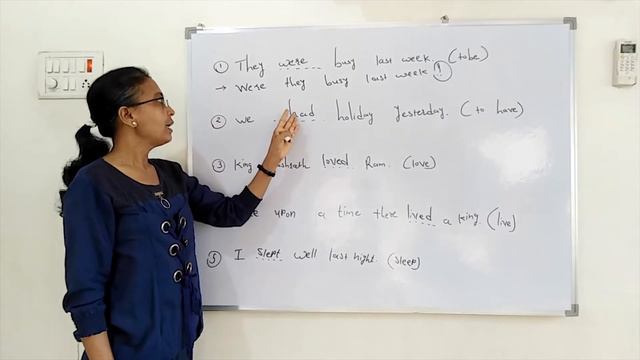 ① They were busy last week. (tobe)
→ Were they busy last week ?
② We had holiday yesterday. (to have)
③ King loved Ram. (love)
upon a time there lived a king. (live)
⑤ I slept well last night. (sleep)